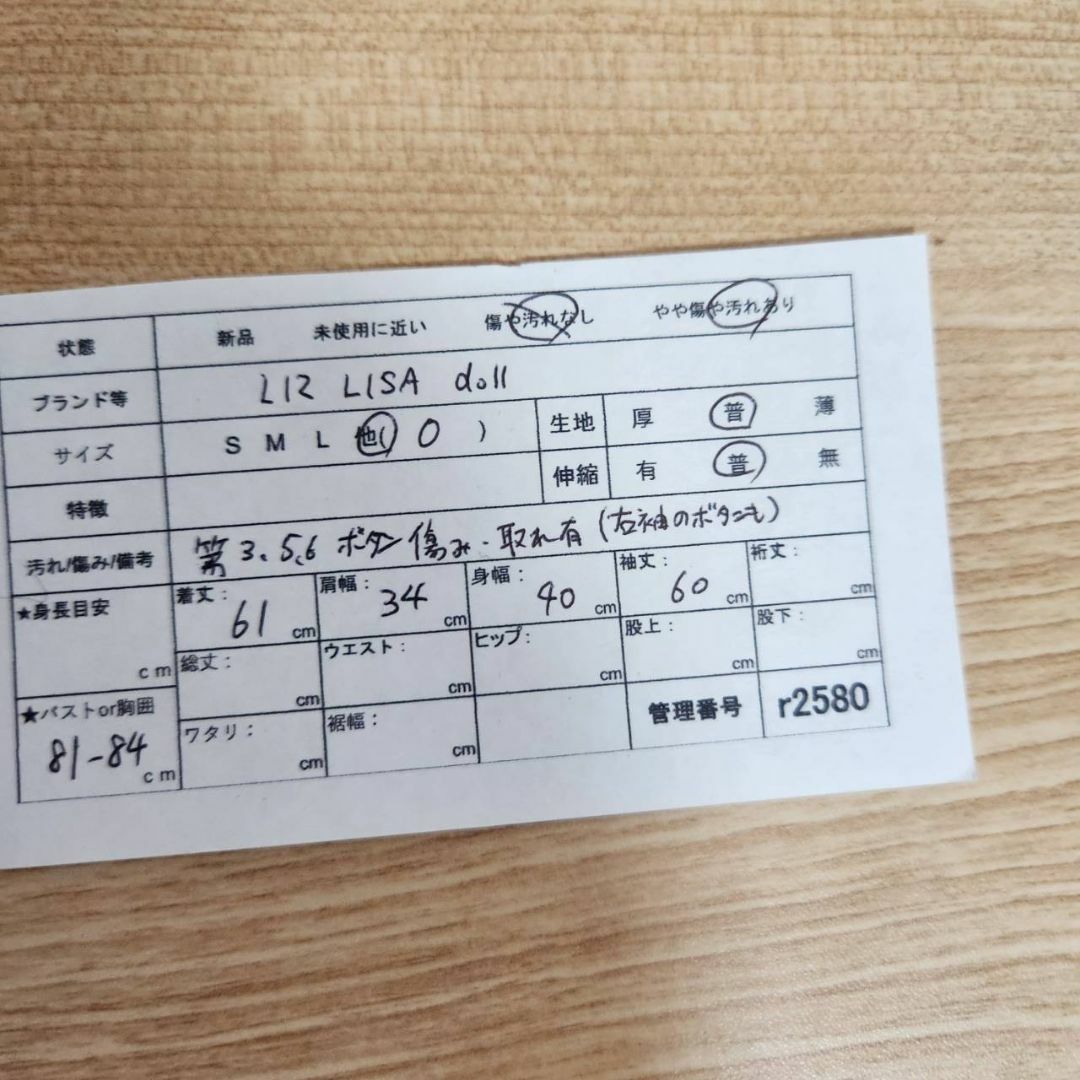 状態 新品 未使用に近い 傷や汚れなし やや傷や汚れあり
ブランド等 LIZ LISA doll
サイズ S M L 他( 0 ) 生地 厚 普 薄
伸縮 有 普 無
特徴
汚れ/傷み/備考 第3、5、6 ボタン傷み・取れ有(右袖のボタンも)
★身長目安 cm
着丈: 61 cm 肩幅: 34 cm 身幅: 40 cm 袖丈: 60 cm 裄丈: cm
総丈: cm ウエスト: cm ヒップ: cm 股上: cm 股下: cm
★バストor胸囲 81-84 cm
ワタリ: cm 裾幅: cm 管理番号 r2580